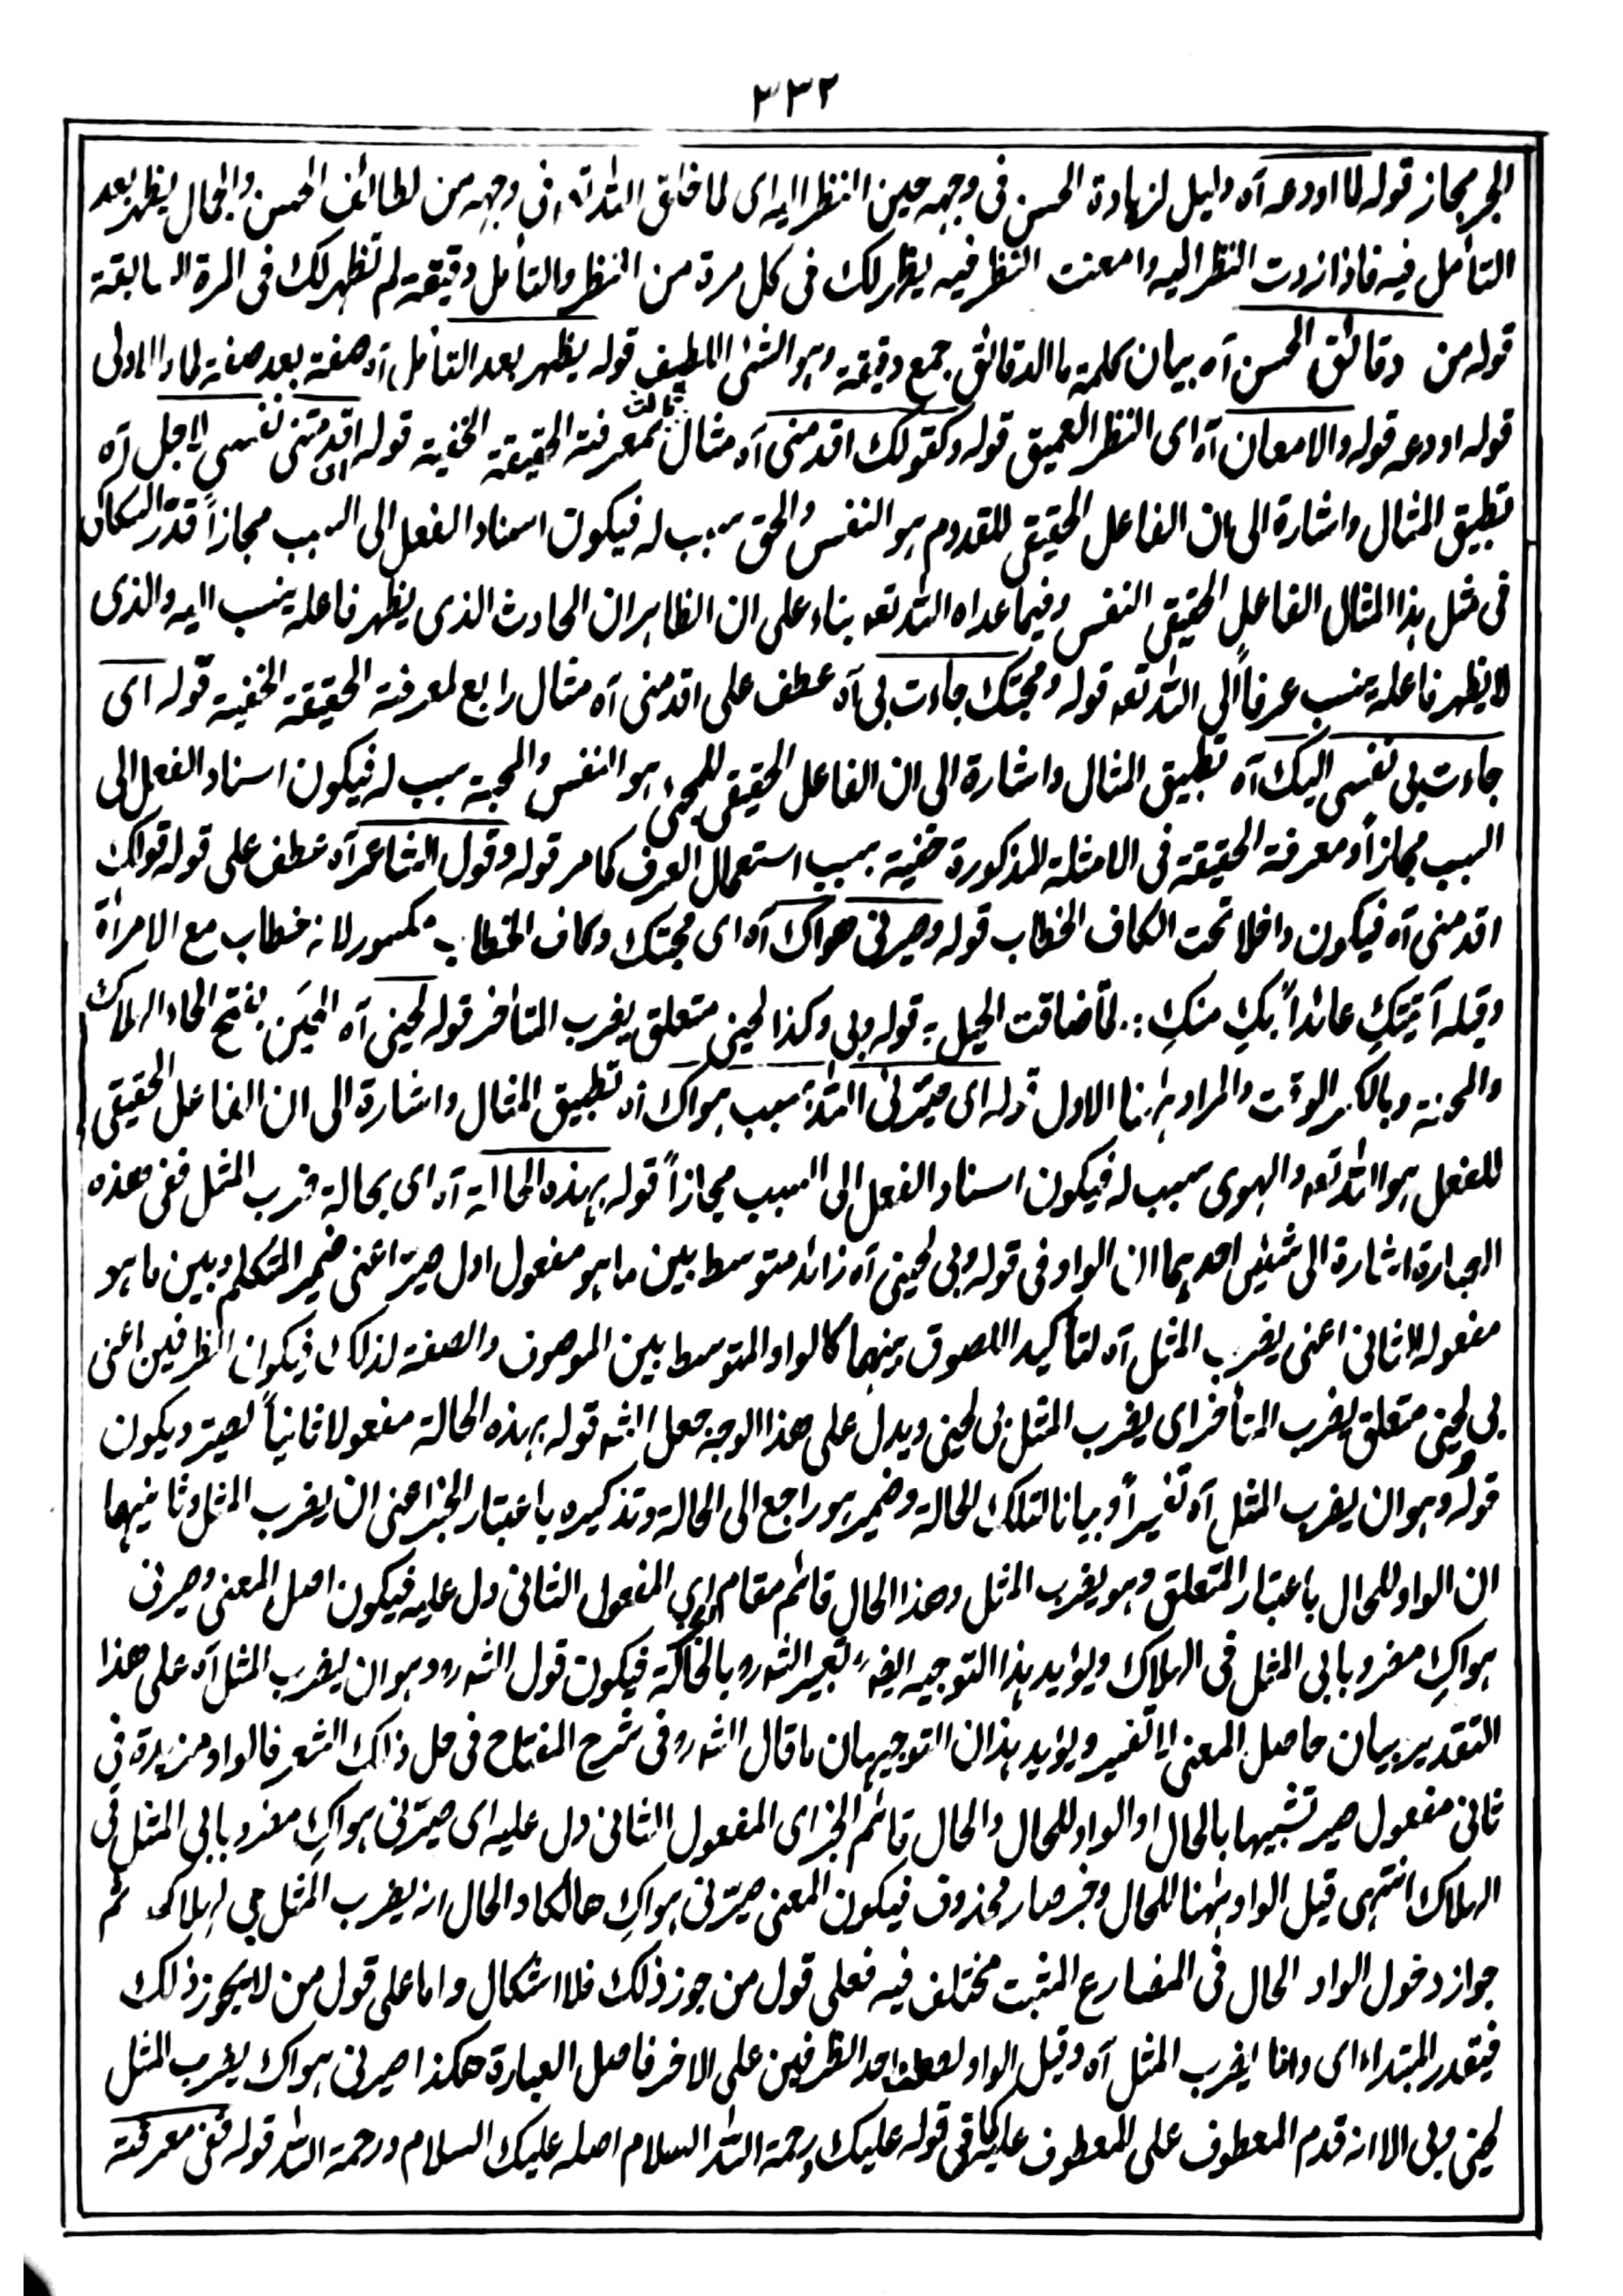 ٣٣٢
الجر مجاز قوله لما اودعه آه دليل لزيادة الحسن فى وجهه حين النظر اليه اى لما خلق الله تعالى فى وجهه من لطائف الحسن والجمال يظهر بعد
التأمل فيه فاذا زدت النظر اليه وامعنت النظر فيه يظهر لك فى كل مرة من النظر والتأمل دقيقة لم تظهر لك فى المرة السابقة
قوله من دقائق الحسن آه بيان لكلمة ما الدقائق جمع دقيقة وهو الشئ اللطيف قوله يظهر بعد التأمل آه صفة بعد صفة لما والاولى
قوله اودعه قوله والامعان آه اى النظر العميق قوله وكقولك اقدمنى آه مثال ثالث لمعرفة الحقيقة الخفية قوله اى اقدمتنى نفسى لاجل آه
تطبيق المثال واشارة الى ان الفاعل الحقيقى للقدوم هو النفس والحق سبب له فيكون اسناد الفعل الى السبب مجازاً قدر السكاكى
فى مثل هذا المثال الفاعل الحقيقى النفس وفيما عداه الله تعه بناء على ان الظاهر ان الحادث الذى يظهر فاعله ينسب اليه والذى
لا يظهر فاعله ينسب عرفاً الى الله تعه قوله ومحبتك جاءت بى آه عطف على اقدمنى آه مثال رابع لمعرفة الحقيقة الخفية قوله اى
جاءت بى نفسى اليك آه تطبيق المثال واشارة الى ان الفاعل الحقيقى للمجئ هو النفس والمحبة سبب له فيكون اسناد الفعل الى
السبب مجازاً ومعرفة الحقيقة فى الامثلة المذكورة خفية بسبب استعمال العرف كما مر قوله وقول الشاعر آه عطف على قوله قولك
اقدمنى آه فيكون داخلا تحت الكاف الخطاب قوله وصيرنى هواك آه اى محبتك وكاف الخطاب مكسور لانه خطاب مع الامرأة
وقبله آتيتكِ عائذاً بكِ منكِ ؞ لمّا ضاقت الحيل ؞ قوله وبى وكذا لحينى متعلق يضرب المتأخر قوله لحينى آه الحَين بفتح الحاء الهلاك
والمحنة وبالكسر الوقت والمراد ههنا الاول قوله اى صيّرنى الله بسبب هواك آه تطبيق المثال واشارة الى ان الفاعل الحقيقى
للفعل هو الله تعه والهوى سبب له فيكون اسناد الفعل الى السبب مجازاً قوله بهذه الحالة آه اى بحالة ضرب المثل ففى هذه
العبارة اشارة الى شيئين احدهما ان الواو فى قوله وبى لحينى آه زائد متوسط بين ما هو مفعول اول صير اعنى ضمير المتكلم وبين ما هو
مفعوله الثانى اعنى يضرب المثل آه لتأكيد اللصوق بينهما كالواو المتوسط بين الموصوف والصفة لذلك فيكون الظرفين اعنى
بى ولحينى متعلق يضرب المتأخر اى يضرب المثل بى لحينى ويدل على هذا الوجه جعل الشه قوله بهذه الحالة مفعولا ثانياً لصير ويكون
قوله وهو ان يضرب المثل آه تفسيراً وبيانا لتلك الحالة وضمير هو راجع الى الحالة وتذكيره باعتبار الخبر اعنى ان يضرب المثل وثانيهما
ان الواو للحال باعتبار المتعلق وهو يضرب المثل وهذا الحال قائم مقام الخبر اى المفعول الثانى دل عليه فيكون اصل المعنى وصيرنى
هواكِ مضروبا بى المثل فى الهلاك ويؤيد هذا التوجيه ايضه تعبير الشه ره بالحالة فيكون قول الشه ره وهو ان يضرب المثل آه على هذا
التقدير بيان حاصل المعنى لا تفسير ويؤيد هذان التوجيهان ما قال الشه ره فى شرح المفتاح فى حل ذلك الشعر فالواو مزيدة فى
ثانى مفعول صير تشبيها بالحال او الواو للحال والحال قائم الخبر اى المفعول الثانى دل عليه اى صيّرنى هواكِ مضروبا بى المثل فى
الهلاك انتهى قيل الواو ههنا للحال وخبر صار محذوف فيكون المعنى صيّرنى هواكِ هالكا والحال انه يضرب المثل بى لهلاكى ثم
جواز دخول الواو الحال فى المضارع المثبت مختلف فيه فعلى قول من جوز ذلك فلا اشكال واما على قول من لا يجوز ذلك
فيقدر المبتداء اى وانا يضرب المثل آه وقيل الواو لعطف احد الظرفين على الاخر فاصل العبارة هكذا صيرنى هواك يضرب المثل
لحينى وبى الا انه قدم المعطوف على المعطوف عليه كما فى قوله عليك ورحمة الله السلام اصله عليك السلام ورحمة الله قوله ففى معرفة